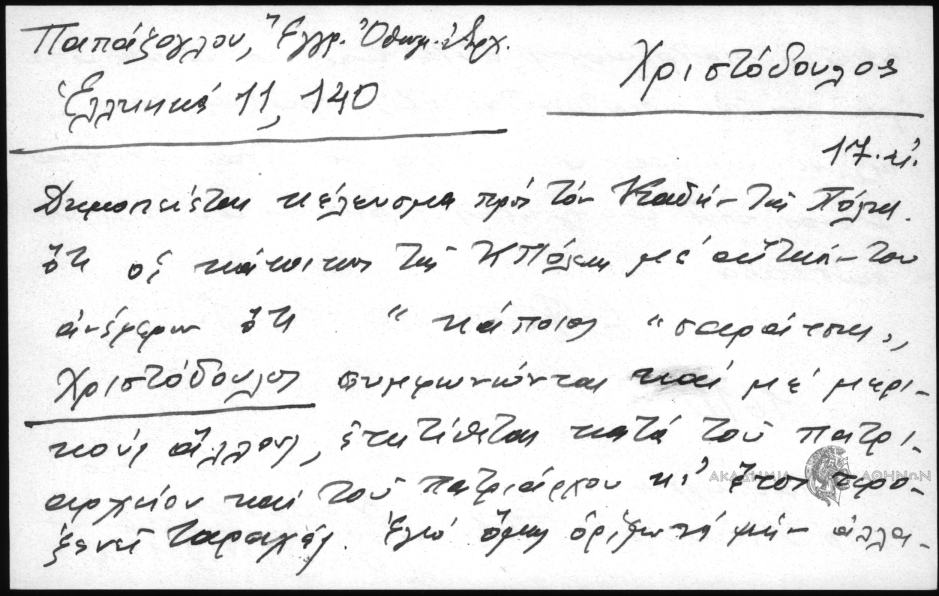 Παπάζογλου, Ἔγγρ. Ὀθωμ. Ἀρχ.
Ἑλληνικά 11, 140
Χριστόδουλος
17. αἰ.
Δημοσιεύεται κέλευσμα πρός τόν Καδῆν τῆς Πόλης.
ὅτι οἱ κάτοικοι τῆς ΚΠόλης μέ αἴτησίν του
ἀνέφερον ὅτι "κάποιος "σαράτσης,,
Χριστόδουλος συμφωνώντας καί μέ μερι-
κούς ἄλλους, ἐπιτίθεται κατά τοῦ πατρι-
αρχείου καί τοῦ Πατριάρχου κι' ἔτσι προ-
ξενεῖ ταραχάς. Ἐγώ ὅμως ὁρίζω νά μήν ἀλλα-
ΑΚΑΔΗΜΙΑ ΑΘΗΝΩΝ